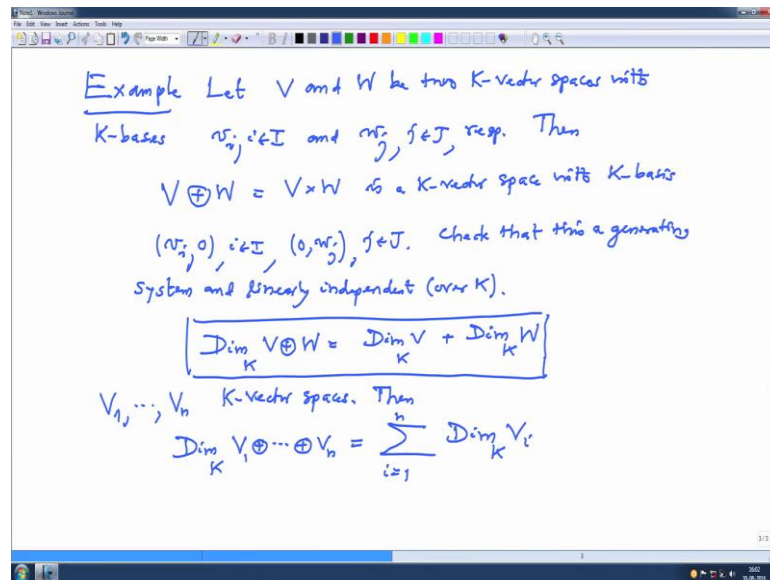 Note1 - Windows Journal
File Edit View Insert Actions Tools Help
Page Width
Example Let V and W be two K-vector spaces with
K-bases v_i, i∈I and w_j, j∈J, resp. Then
V ⊕ W = V × W is a K-vector space with K-basis
(v_i, 0), i∈I, (0, w_j), j∈J. Check that this a generating
system and linearly independent (over K).
Dim_K V⊕W = Dim_K V + Dim_K W
V_1, ..., V_n K-vector spaces. Then
Dim_K V_1 ⊕ ... ⊕ V_n = ∑_{i=1}^{n} Dim_K V_i
3/3
3
16:02